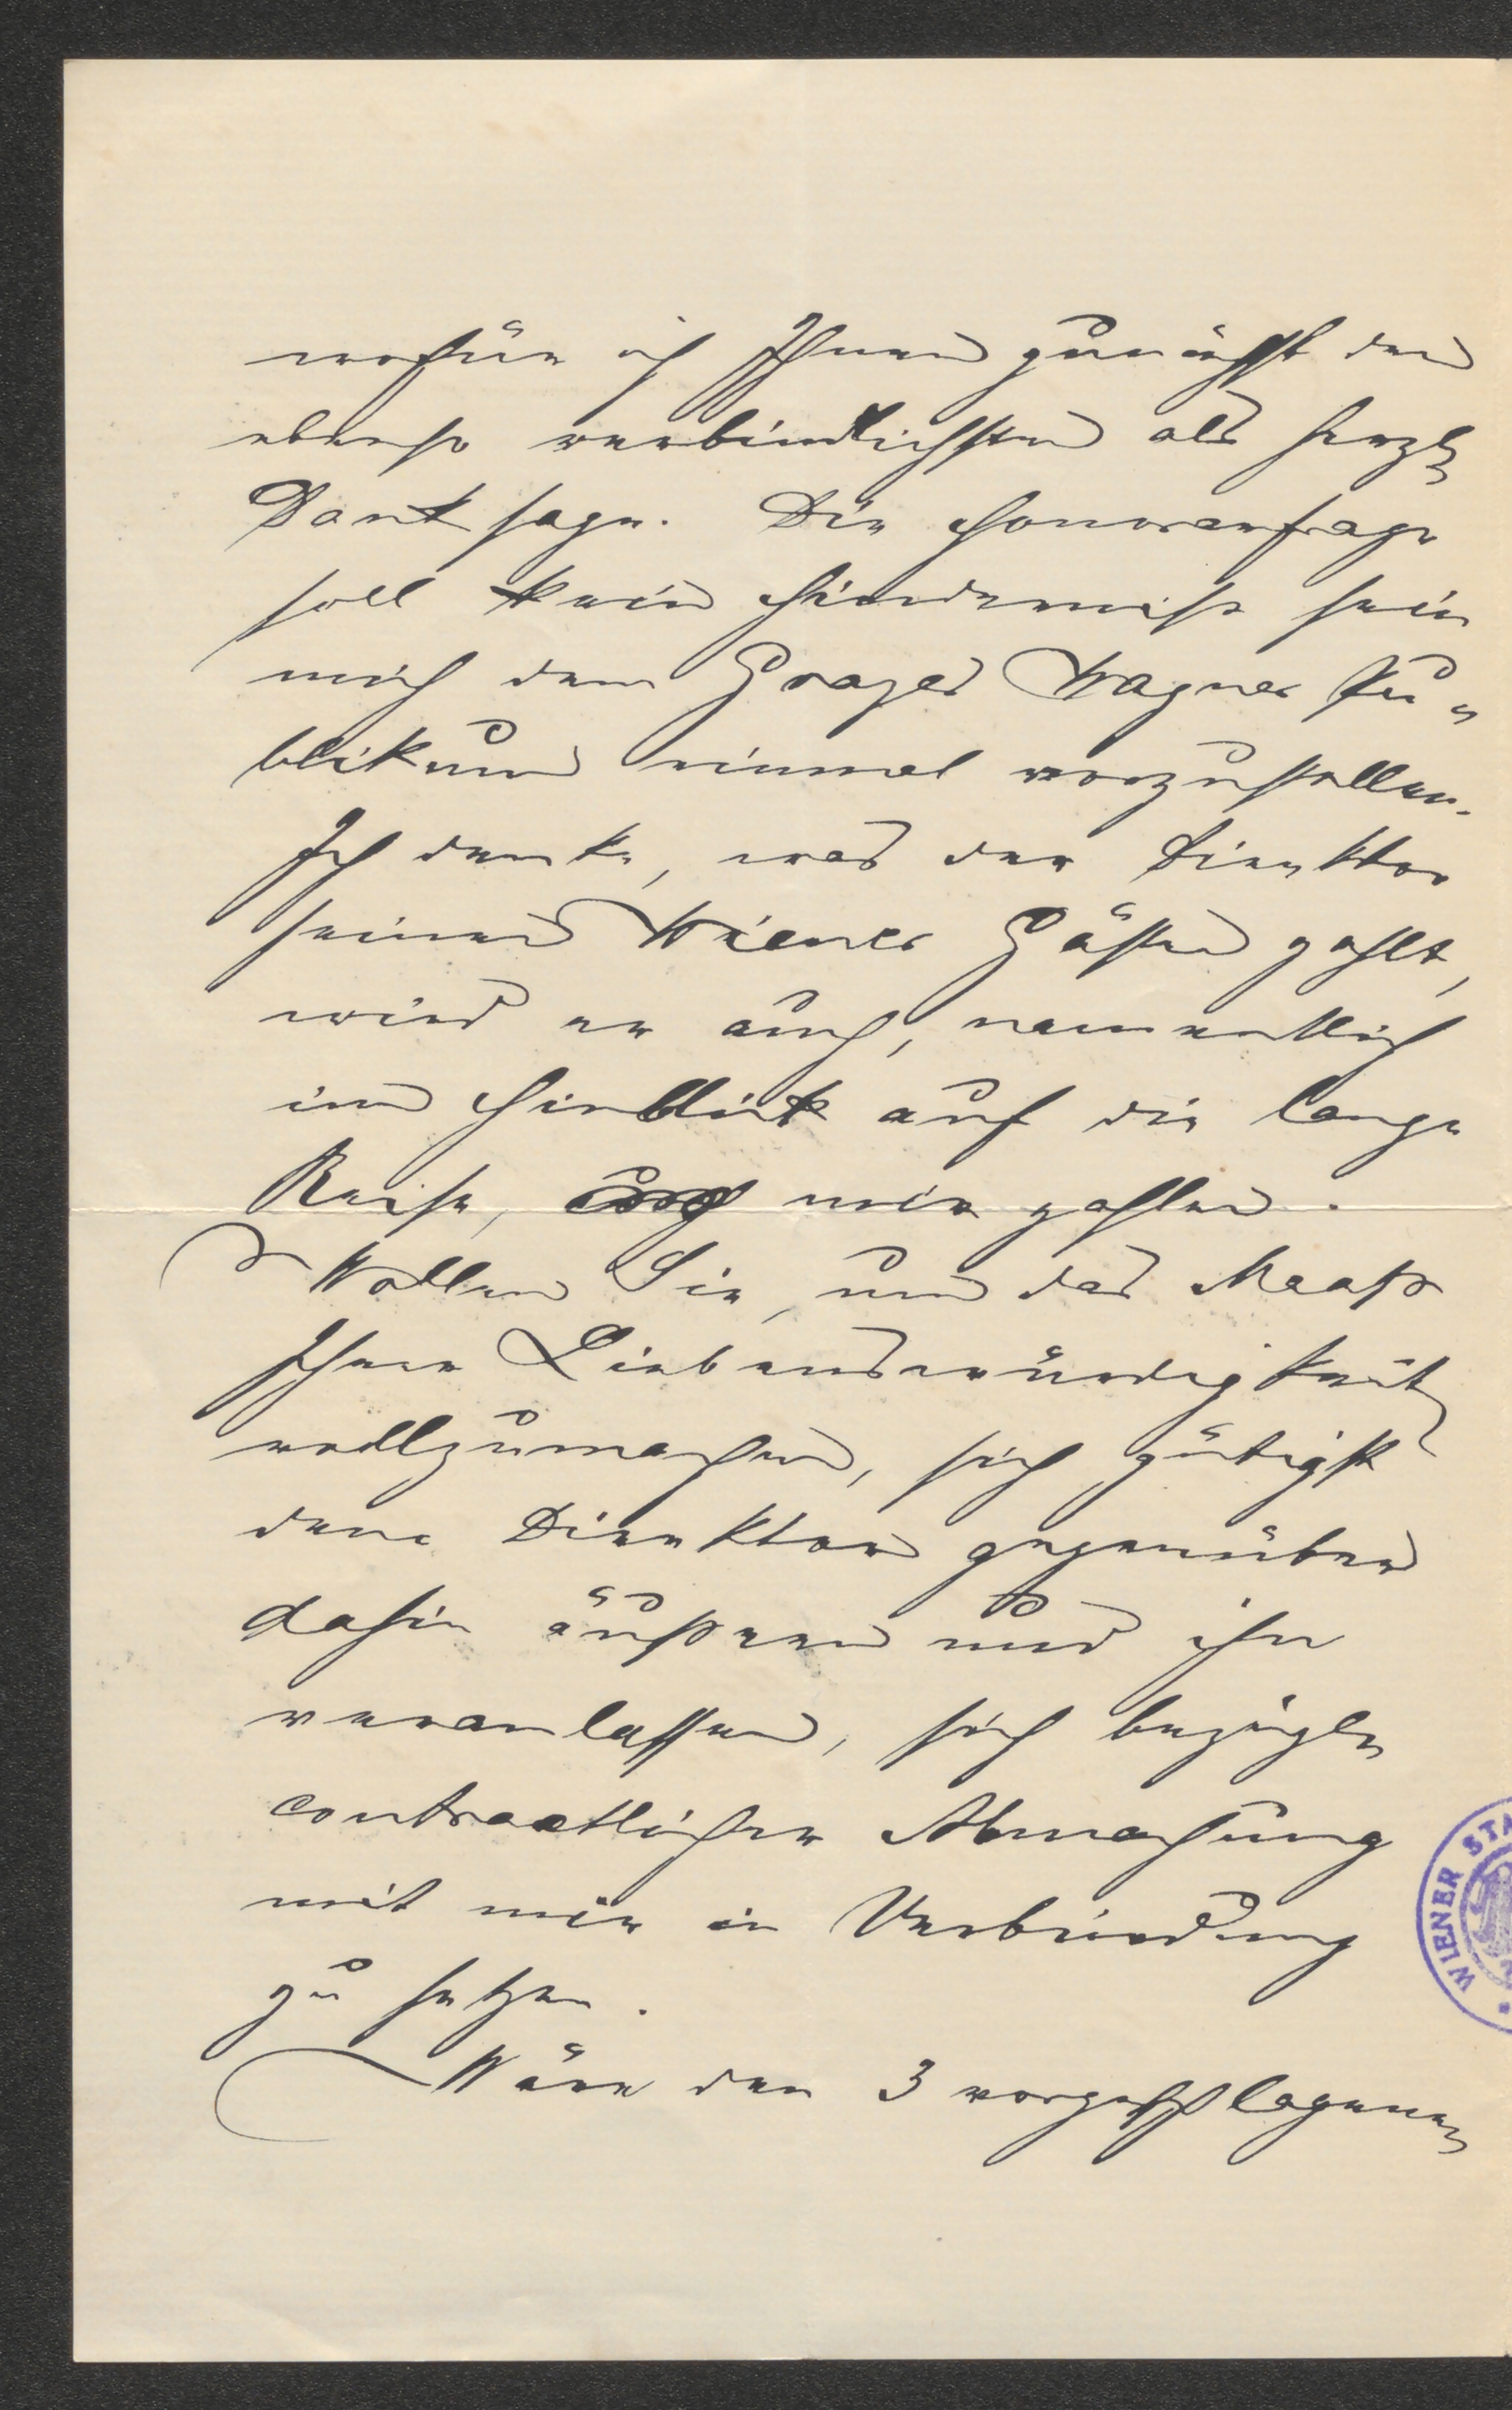 wofür ich Ihnen zunächst den
ebenso verbindlichsten als herzl
Dank sage. Die Honorarfrage
soll kein Hinderniß sein
mich dem Grazer Wagner Pu-
blikum einmal vorzustellen.
Ich denke, was der Direktor
seinen Wiener Gästen zahlt,
wird er auch, namentlich
im Hinblick auf die lange
Reise, mir zahlen.
Wollen Sie, um das Maaß
Ihrer Liebenswürdigkeit
vollzumachen, sich gütigst
dem Direktor gegenüber
dahin äußern und ihn
veranlassen, sich bezügl
contractlicher Abmachung
mit mir in Verbindung
zu setzen.
Wäre den 3 vorgeschlagenen
WIENER STA